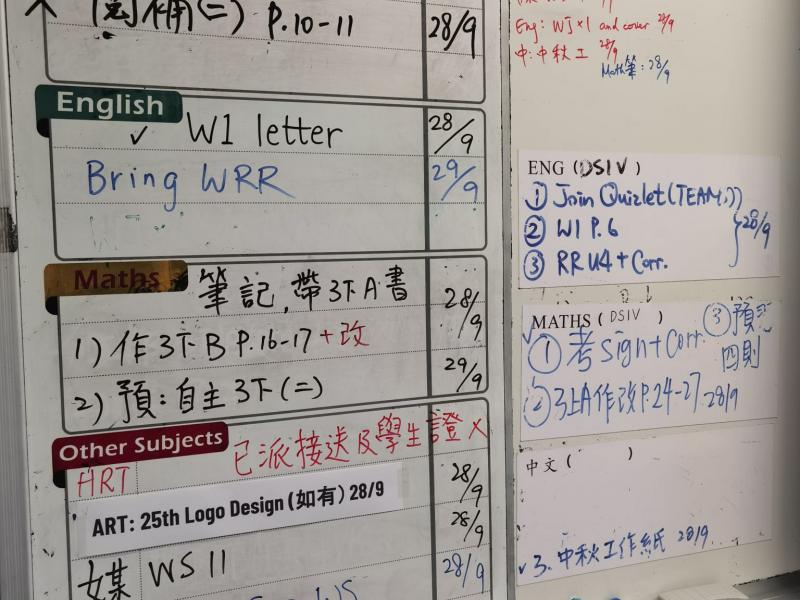 補(二) P.10-11 28/9
English
✓ WI letter 28/9
Bring WRR 29/9
Maths
筆記,帶3下A書 28/9
1)作3下B P.16-17+改
2)預:自主3下(二) 29/9
Other Subjects
已派接送及學生證 x
ART 28/9
ART: 25th Logo Design (如有) 28/9
28/9
媒 WS 11 28/9
WS
Eng: WJ x1 and cover 28/9
中:中秋工 28/9
Math筆:28/9
ENG (DSIV)
① Join Quizlet (TEAMS)
② WI P.6
③ RR U4 + Corr.
28/9
MATHS (DSIV)
① 考sign+Corr. ③預
四則
② 3上A作改P.24-27 28/9
中文 ( )
3. 中秋工作紙 28/9